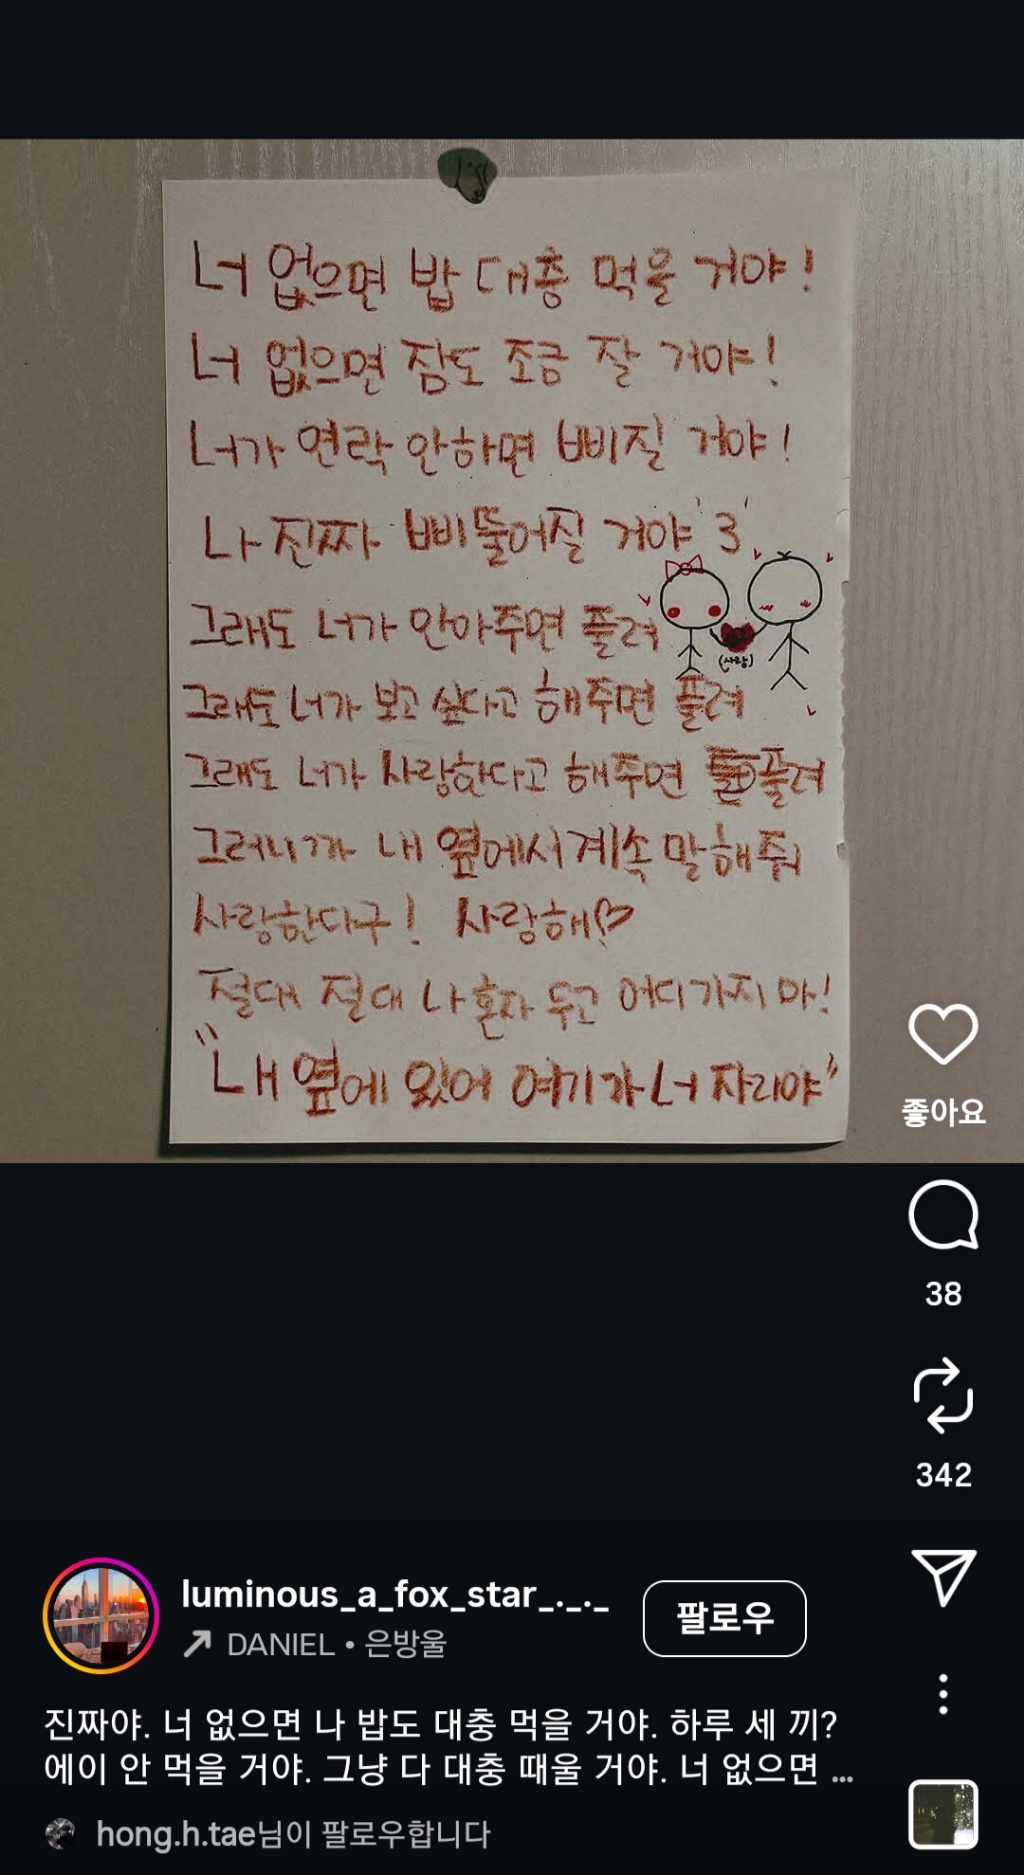 너 없으면 밥 대충 먹을 거야!
너 없으면 잠도 조금 잘 거야!
너가 연락 안하면 삐질 거야!
나 진짜 삐뚤어질 거야 '3'
그래도 너가 안아주면 풀려
(사랑)
그래도 너가 보고 싶다고 해주면 풀려
그래도 너가 사랑한다고 해주면 풀려
그러니까 내 옆에서 계속 말해줘
사랑한다구! 사랑해♡
절대 절대 나 혼자 두고 어디가지 마!
"내 옆에 있어 여기가 너 자리야"
좋아요
38
342
luminous_a_fox_star_._._
팔로우
DANIEL • 은방울
진짜야. 너 없으면 나 밥도 대충 먹을 거야. 하루 세 끼?
에이 안 먹을 거야. 그냥 다 대충 때울 거야. 너 없으면 ...
hong.h.tae님이 팔로우합니다